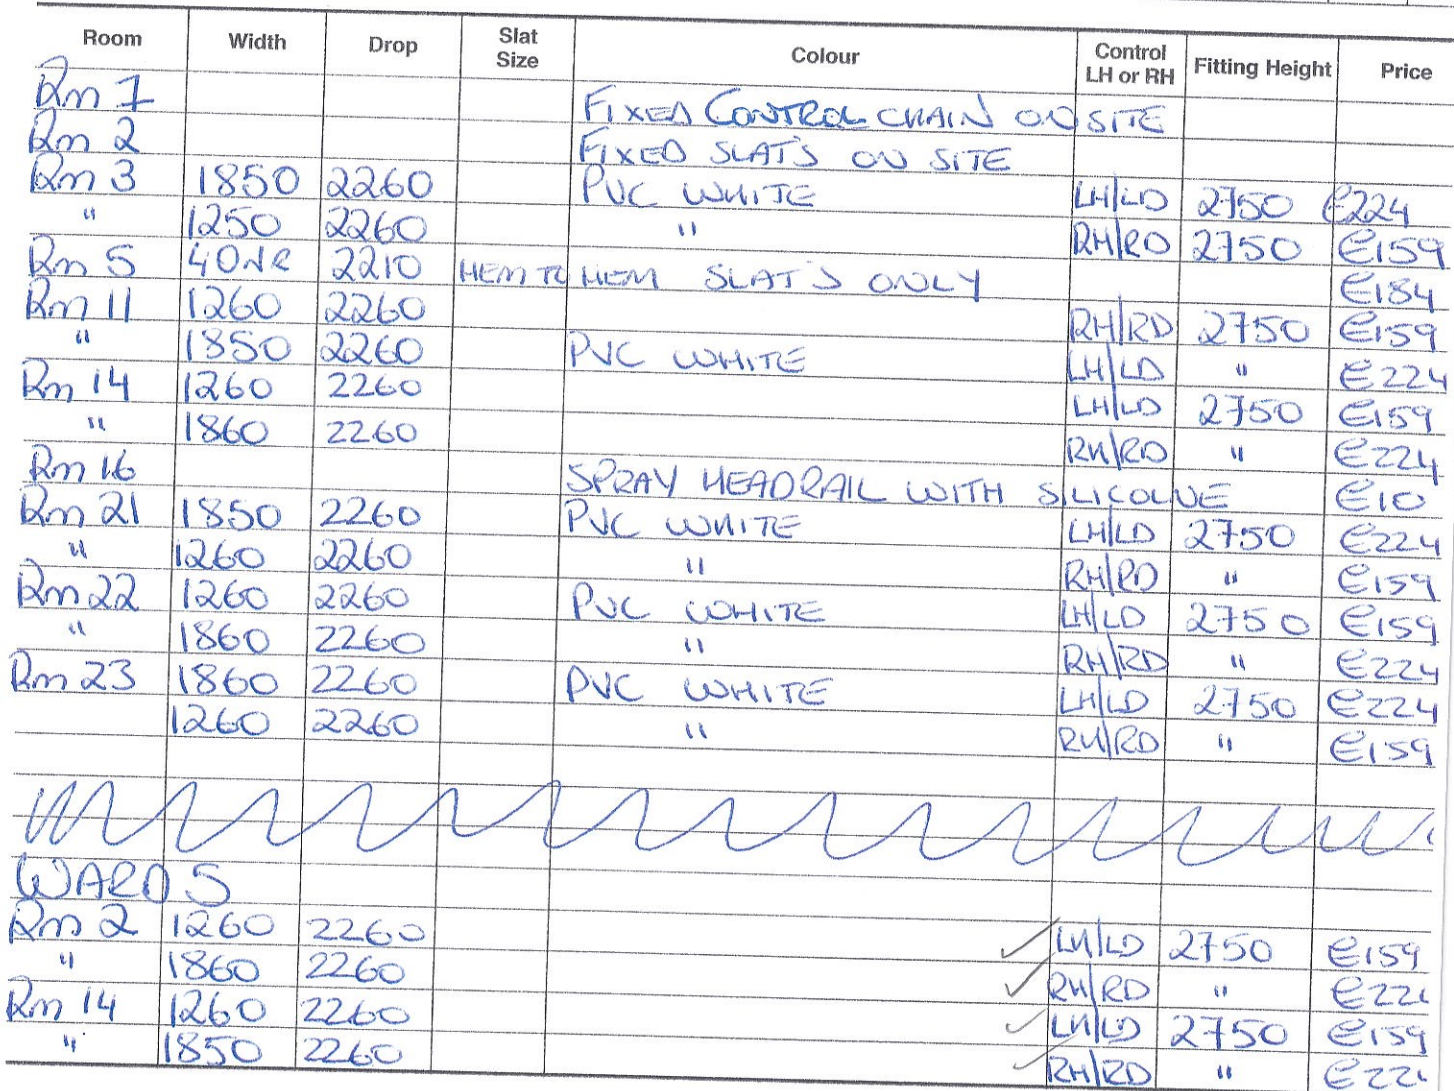 Room Width Drop Slat Size Colour Control LH or RH Fitting Height Price
Rm 7 FIXED CONTROL CHAIN ON SITE
Rm 2 FIXED SLATS ON SITE
Rm 3 1850 2260 PVC WHITE LH/LD 2750 €224
" 1250 2260 " RH/RD 2750 €159
Rm 5 40NR 2210 HEM TO HEM SLATS ONLY €184
Rm 11 1260 2260 RH/RD 2750 €159
" 1850 2260 PVC WHITE LH/LD " €224
Rm 14 1260 2260 LH/LD 2750 €159
" 1860 2260 RH/RD " €224
Rm 16 SPRAY HEADRAIL WITH SILICOLNE €10
Rm 21 1850 2260 PVC WHITE LH/LD 2750 €224
" 1260 2260 " RH/RD " €159
Rm 22 1260 2260 PVC WHITE LH/LD 2750 €159
" 1860 2260 " RH/RD " €224
Rm 23 1860 2260 PVC WHITE LH/LD 2750 €224
1260 2260 " RH/RD " €159
WARD 5
Rm 2 1260 2260 LH/LD 2750 €159
" 1860 2260 RH/RD " €22
Rm 14 1260 2260 LH/LD 2750 €159
" 1850 2260 RH/RD " €22